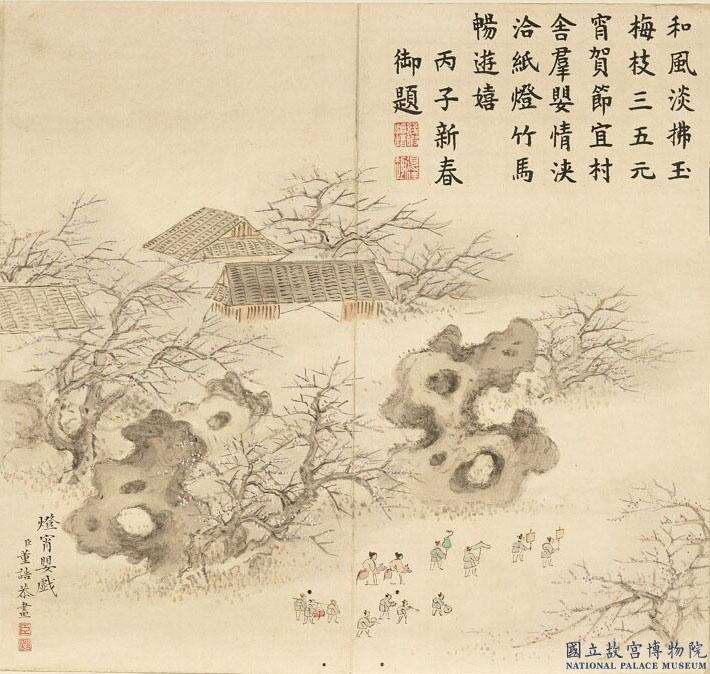 和風淡拂玉
梅枝三五元
宵賀節宜村
舍羣嬰情浹
洽紙燈竹馬
暢遊嬉
丙子新春
御題
燈宵嬰戲
臣董誥恭畫
國立故宮博物院
NATIONAL PALACE MUSEUM